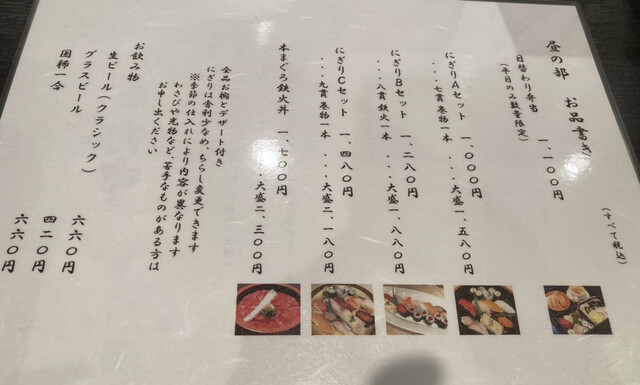 昼の部　お品書き
（すべて税込）
日替わり弁当　一、一〇〇円
（平日のみ数量限定）
にぎりAセット　一、〇〇〇円
・・・七貫 巻物一本　・・・大盛一、五八〇円
にぎりBセット　一、二八〇円
・・・八貫 鉄火一本　・・・大盛一、八八〇円
にぎりCセット　一、四八〇円
・・・九貫 巻物一本　・・・大盛二、一八〇円
本まぐろ鉄火丼　一、七〇〇円
・・・大盛二、三〇〇円
全品お椀とデザート付き
にぎりは舎利少なめ、ちらし変更できます
※季節の仕入れにより内容が異なります
わさびや光物など、苦手なものがある方は
お申し出ください
お飲み物
生ビール（クラシック）　六六〇円
グラスビール　四二〇円
國稀一合　六六〇円